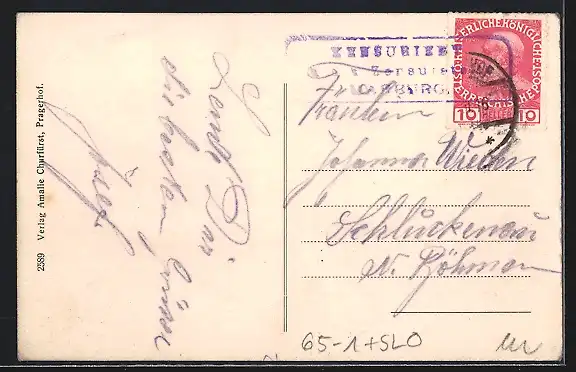 2589 Verlag Amalie Churfürst, Pragerhof.
Sende Dir
die besten Grüsse
ZENSURIERT
K. Zensurst
MARBURG
KAISERLICHEKÖNIGLICHE
ÖSTERREICHISCHE POST
10 HELLER 10
Fräulein
Johanna
Schluckenau
N. Böhmen
65-1+SLO